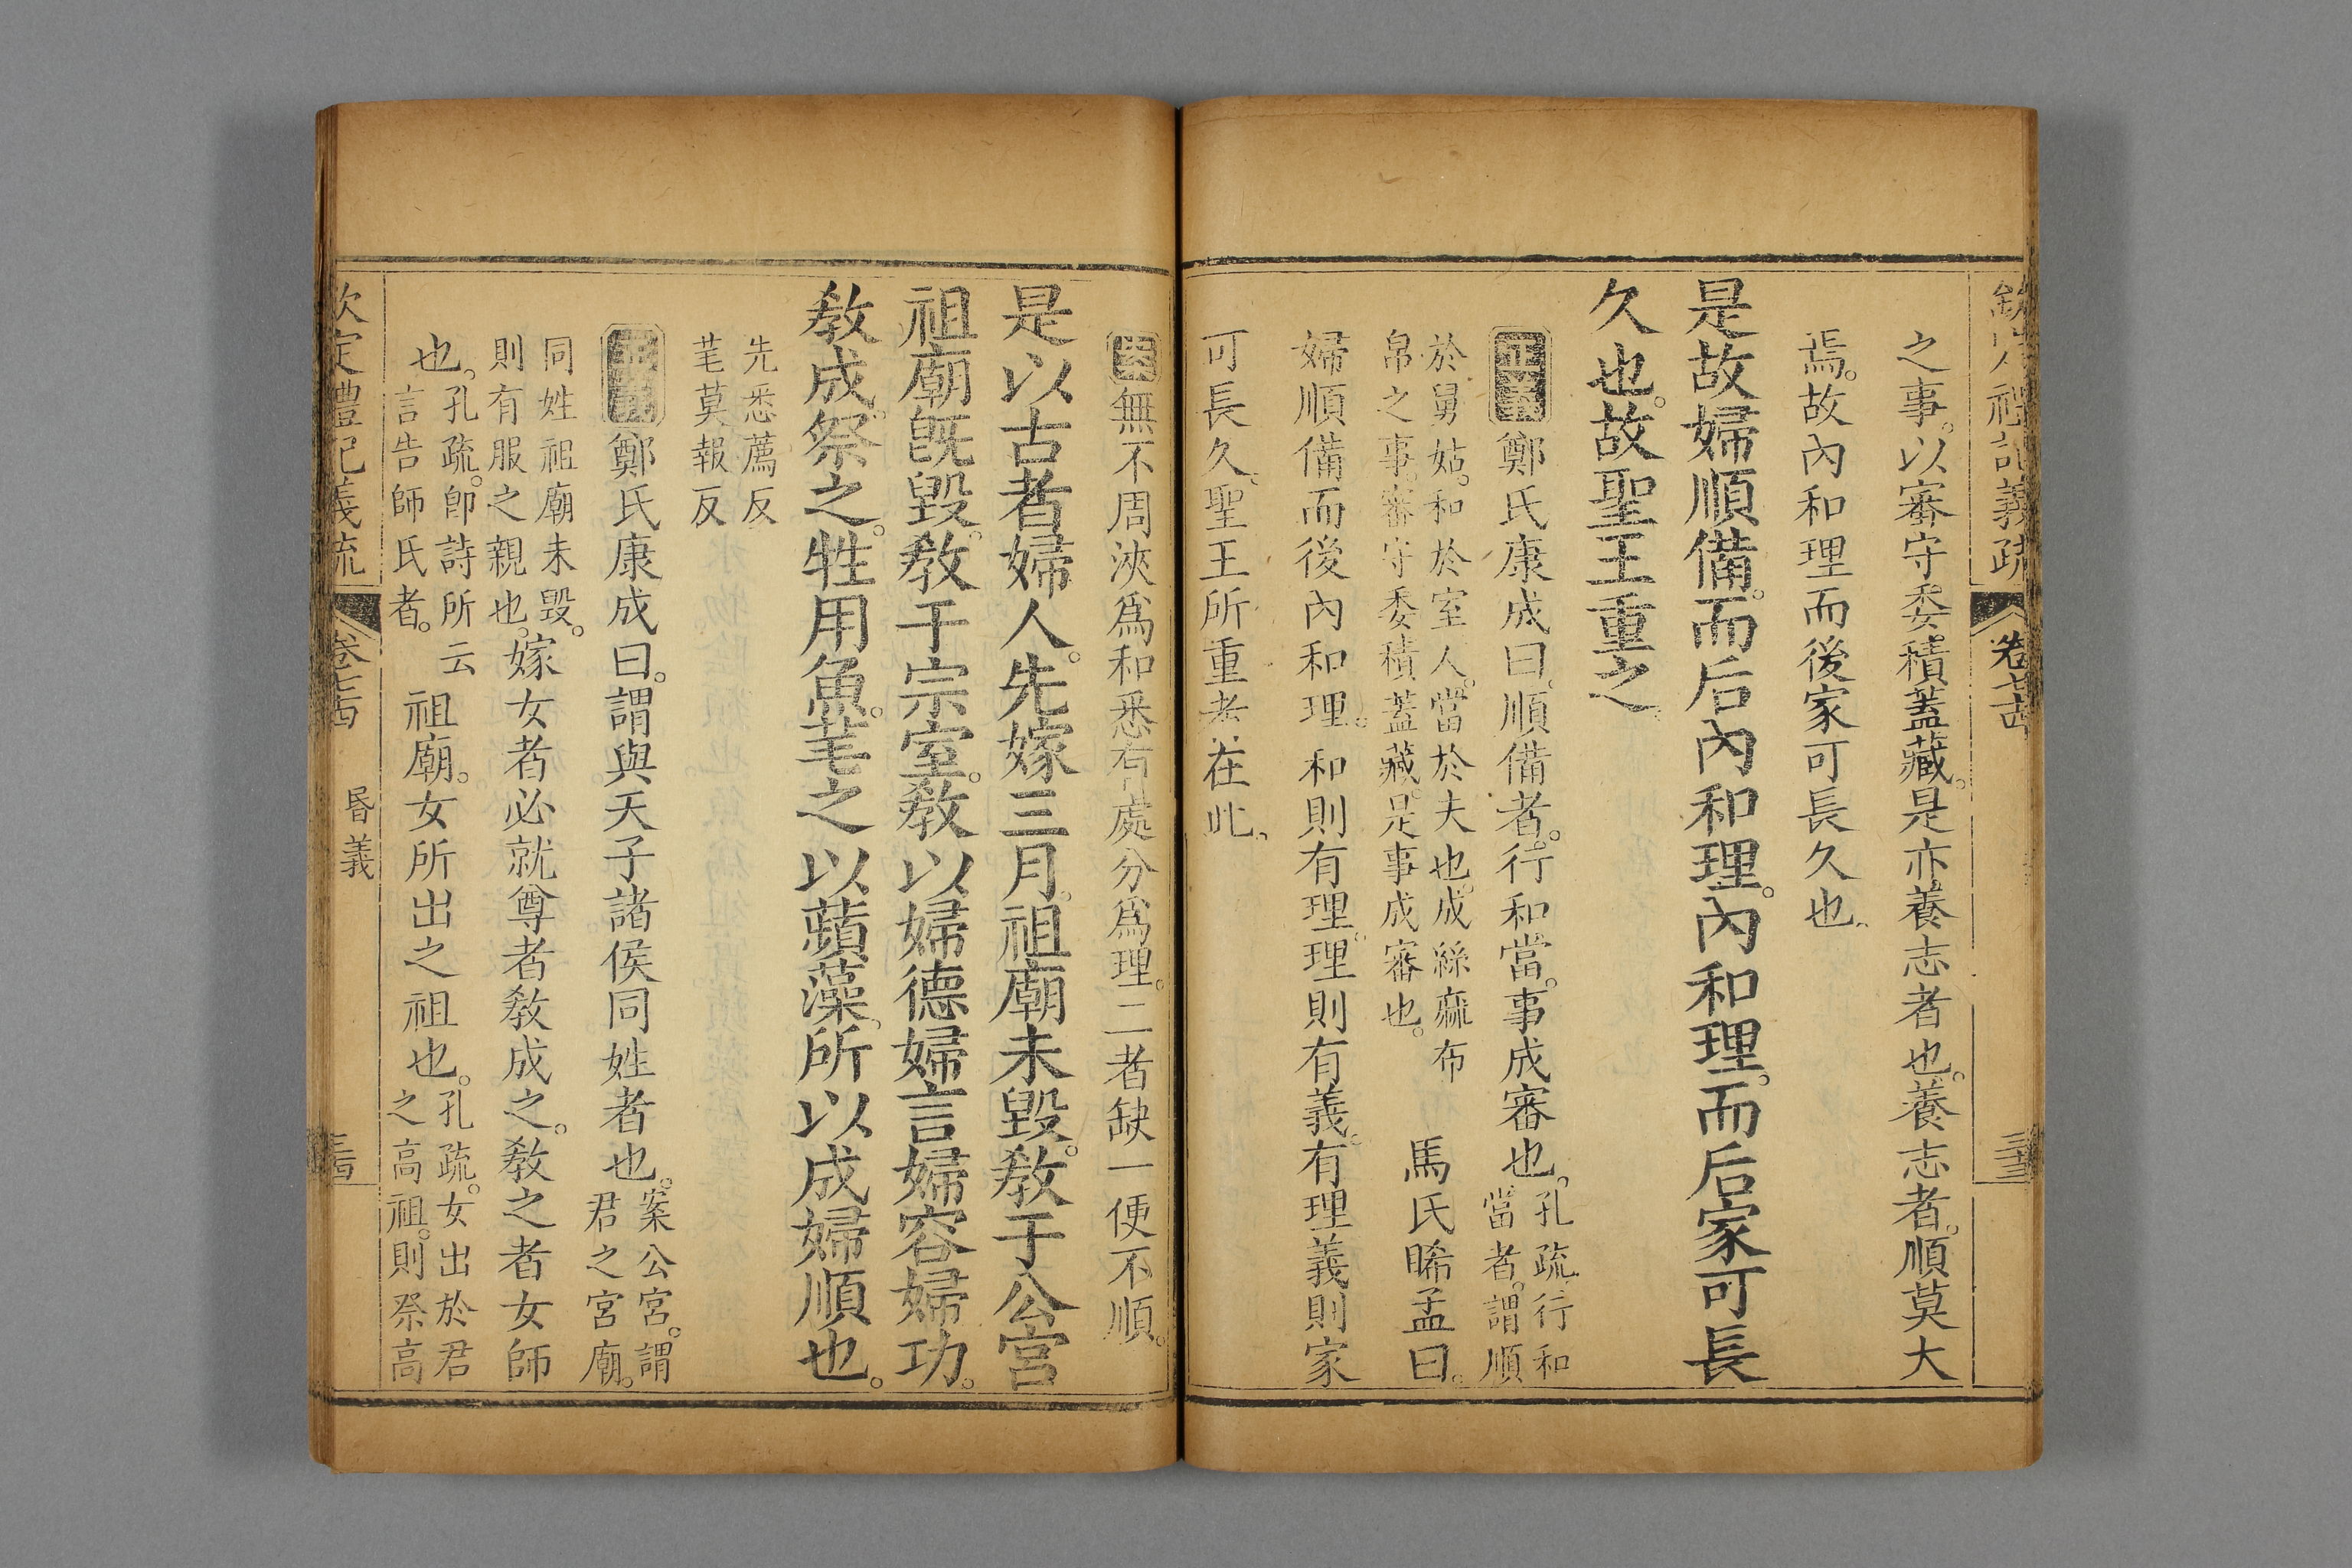 欽定禮記義疏 卷七十四 三十三
之事。以審守委積蓋藏。是亦養志者也。養志者。順莫大
焉。故內和理而後家可長久也。
是故婦順備。而后內和理。內和理。而后家可長
久也。故聖王重之。
正義 鄭氏康成曰。順備者。行和當。事成審也。孔疏。行和
當者。謂順
於舅姑。和於室人。當於夫也。成絲麻布
帛之事。審守委積蓋藏。是事成審也。
馬氏睎孟曰。
婦順備而後內和理。和則有理。理則有義。有理義則家
可長久。聖王所重者在此。
案 無不周浹爲和悉有處分爲理。二者缺一便不順。
是以古者婦人。先嫁三月。祖廟未毀。敎于公宮
祖廟旣毀。敎于宗室。敎以婦德婦言婦容婦功。
敎成。祭之。牲用魚。芼之以蘋藻。所以成婦順也。
先悉薦反
芼莫報反
正義 鄭氏康成曰。謂與天子諸侯同姓者也。案公宮。謂
君之宮廟。
同姓祖廟未毀。
則有服之親也。
嫁女者必就尊者敎成之。敎之者女師
也。孔疏。卽詩所云
言告師氏者。
祖廟。女所出之祖也。孔疏。女出於君
之高祖。則祭高
欽定禮記義疏 卷七十四 昏義 三十四